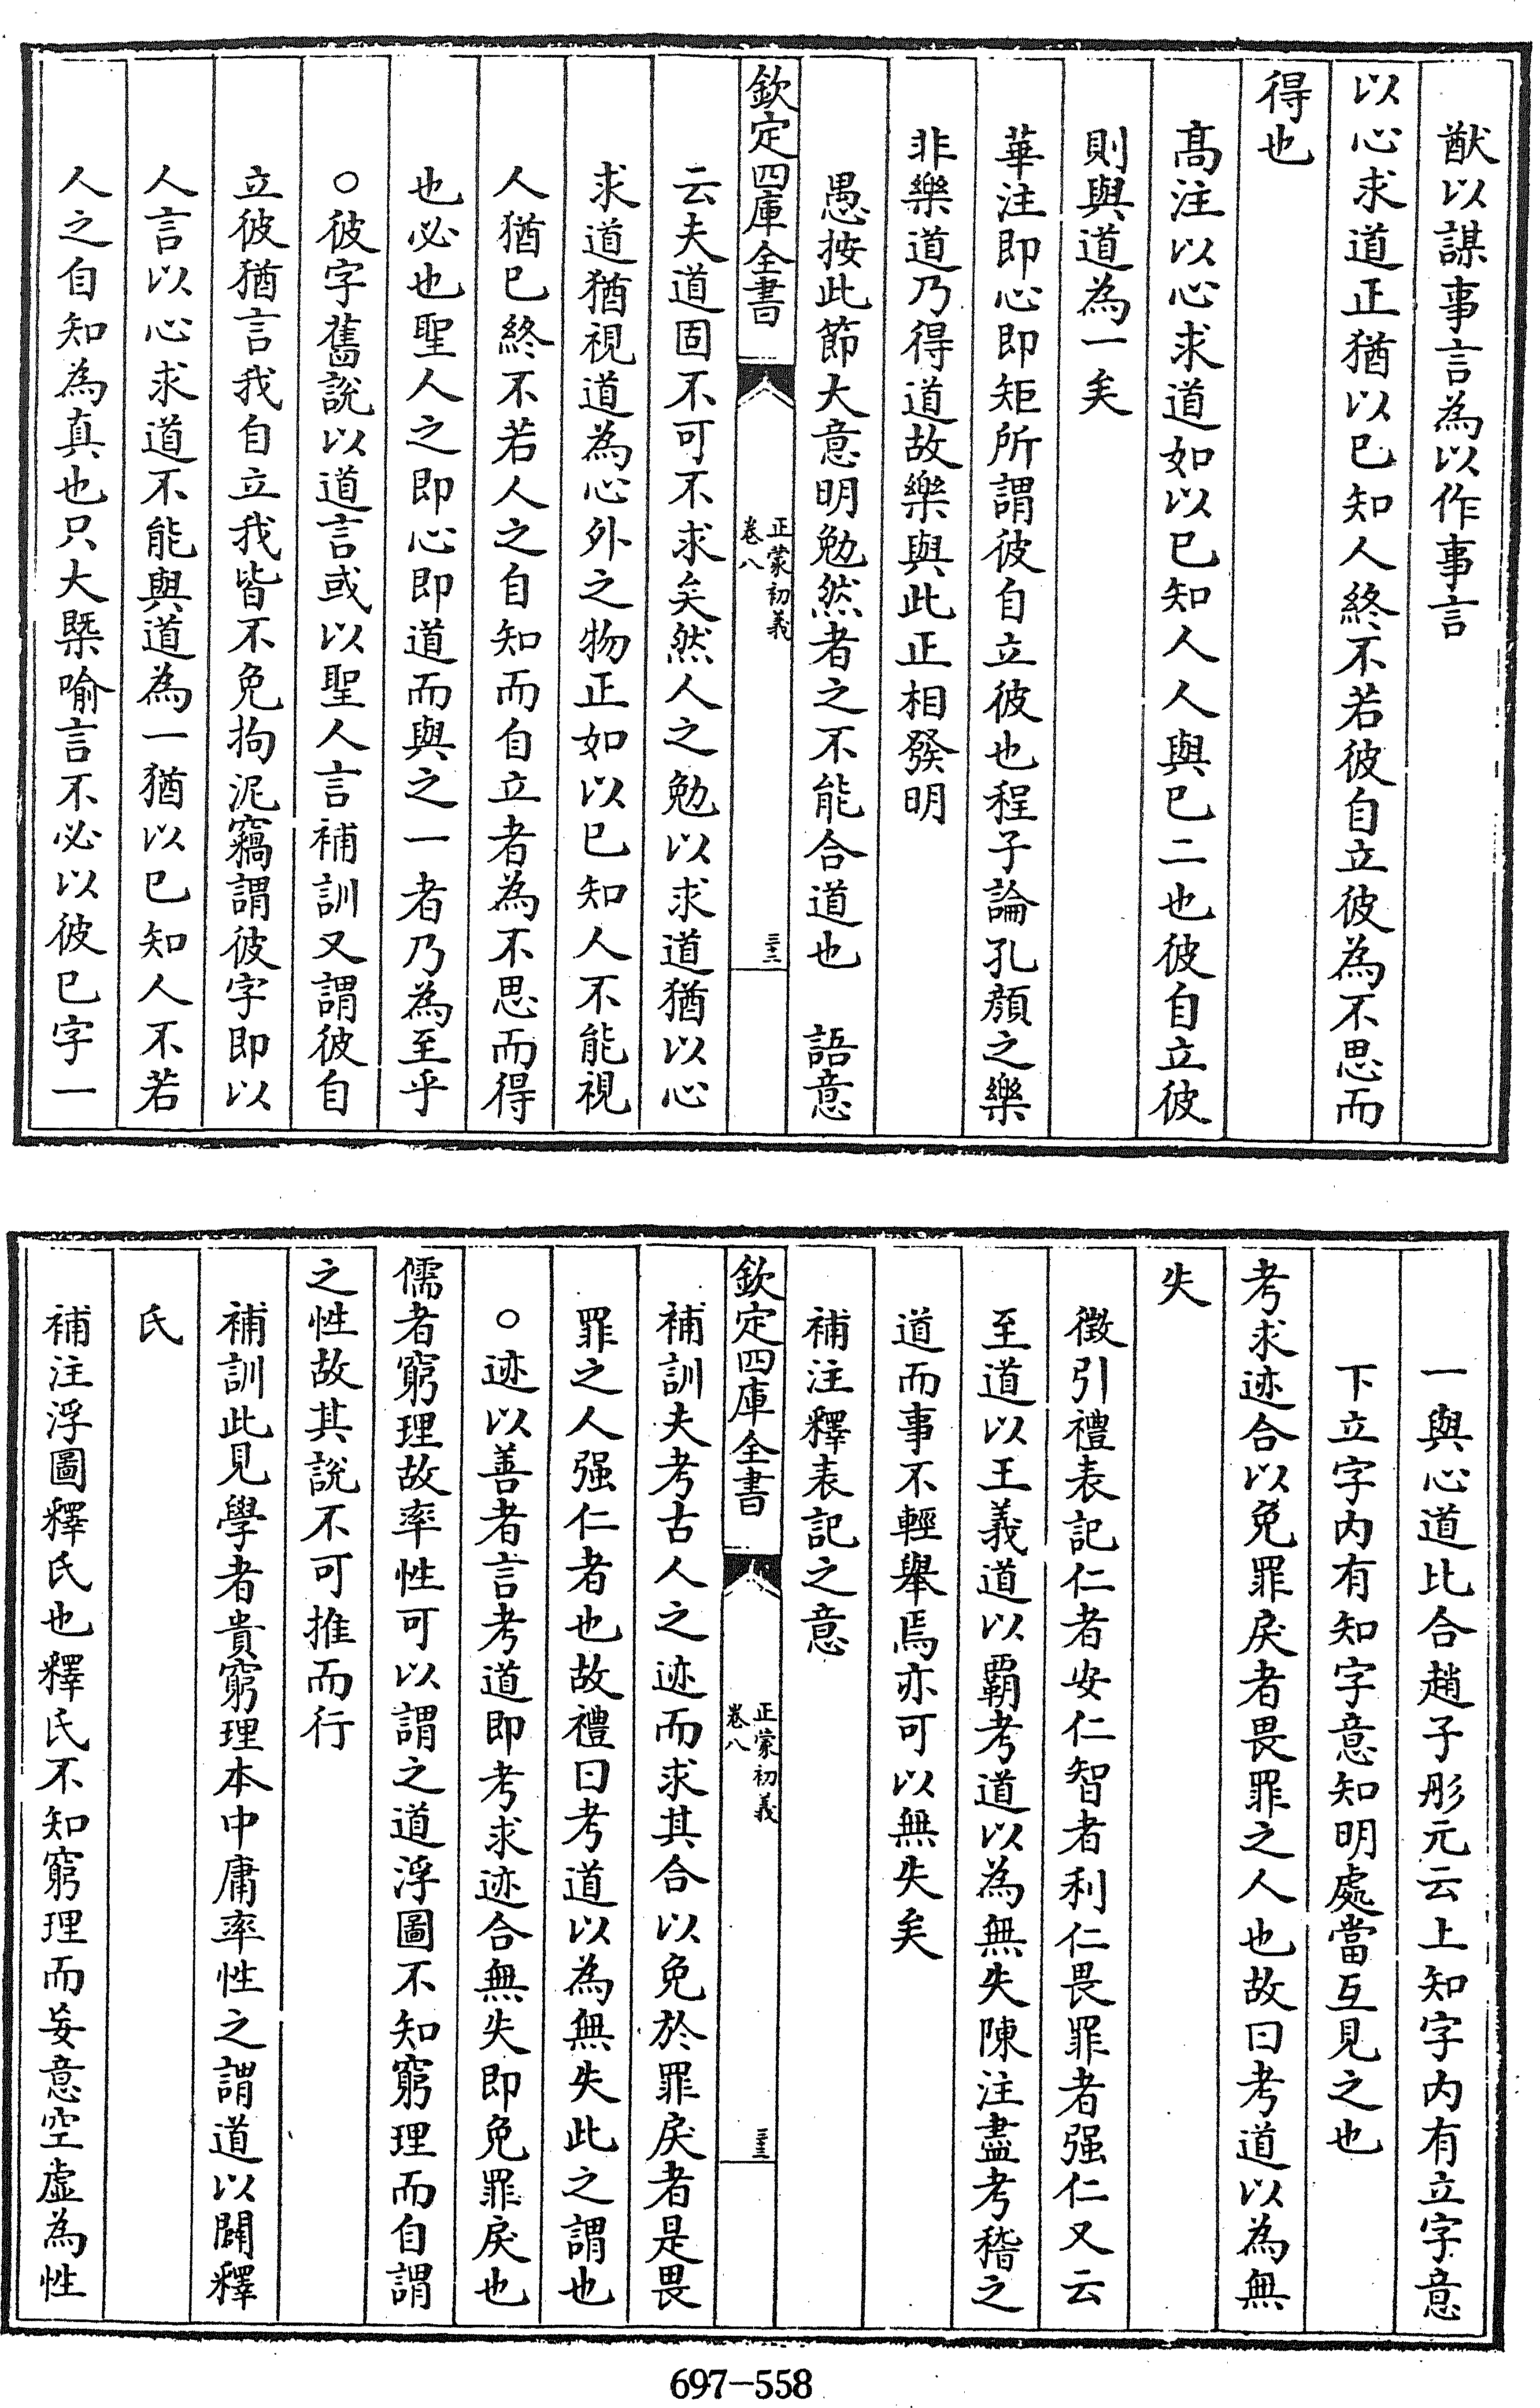 猷以謀事言為以作事言
以心求道正猶以已知人終不若彼自立彼為不思而
得也
髙注以心求道如以已知人人與已二也彼自立彼
則與道為一矣
華注即心即矩所謂彼自立彼也程子論孔顔之樂
非樂道乃得道故樂與此正相發明
愚按此節大意明勉然者之不能合道也　語意
欽定四庫全書
正蒙初義
卷八
三十二
云夫道固不可不求矣然人之勉以求道猶以心
求道猶視道為心外之物正如以已知人不能視
人猶已終不若人之自知而自立者為不思而得
也必也聖人之即心即道而與之一者乃為至乎
○彼字舊説以道言或以聖人言補訓又謂彼自
立彼猶言我自立我皆不免拘泥竊謂彼字即以
人言以心求道不能與道為一猶以已知人不若
人之自知為真也只大槩喻言不必以彼已字一
一與心道比合趙子彤元云上知字内有立字意
下立字内有知字意知明處當互見之也
考求迹合以免罪戾者畏罪之人也故曰考道以為無
失
徵引禮表記仁者安仁智者利仁畏罪者强仁又云
至道以王義道以霸考道以為無失陳注盡考稽之
道而事不輕舉焉亦可以無失矣
補注釋表記之意
欽定四庫全書
正蒙初義
卷八
三十三
補訓夫考古人之迹而求其合以免於罪戾者是畏
罪之人强仁者也故禮曰考道以為無失此之謂也
○迹以善者言考道即考求迹合無失即免罪戾也
儒者窮理故率性可以謂之道浮圖不知窮理而自謂
之性故其説不可推而行
補訓此見學者貴窮理本中庸率性之謂道以闢釋
氏
補注浮圖釋氏也釋氏不知窮理而妄意空虛為性
697-558